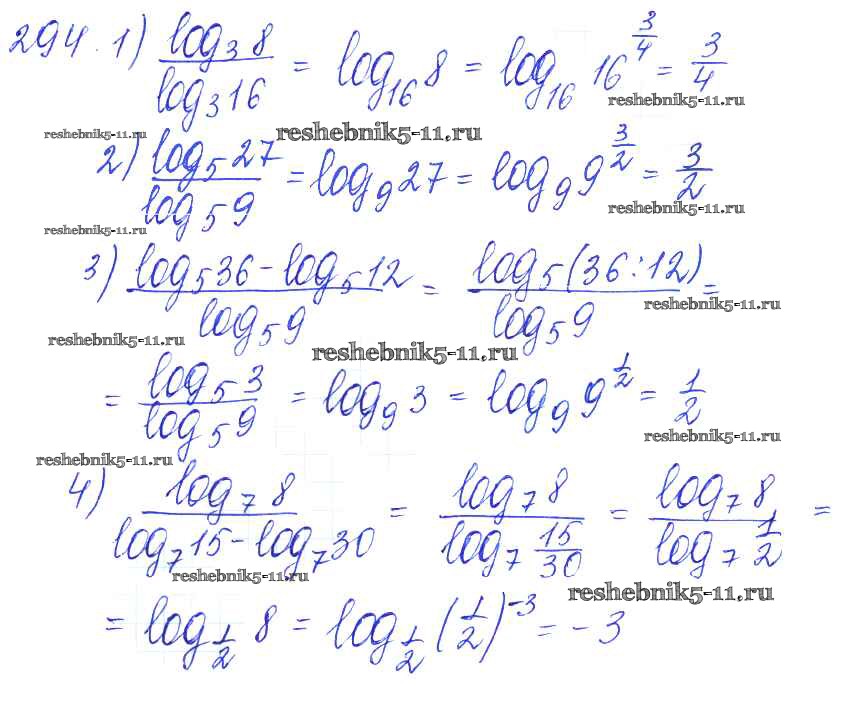 294. 1) log₃8 / log₃16 = log₁₆8 = log₁₆16^(3/4) = 3/4
reshebnik5-11.ru
reshebnik5-11.ru reshebnik5-11.ru
2) log₅27 / log₅9 = log₉27 = log₉9^(3/2) = 3/2
reshebnik5-11.ru
reshebnik5-11.ru
3) (log₅36 - log₅12) / log₅9 = log₅(36:12) / log₅9 =
reshebnik5-11.ru
reshebnik5-11.ru reshebnik5-11.ru
= log₅3 / log₅9 = log₉3 = log₉9^(1/2) = 1/2
reshebnik5-11.ru
reshebnik5-11.ru
4) log₇8 / (log₇15 - log₇30) = log₇8 / log₇(15/30) = log₇8 / log₇(1/2) =
reshebnik5-11.ru reshebnik5-11.ru
= log_(1/2) 8 = log_(1/2) (1/2)^(-3) = -3